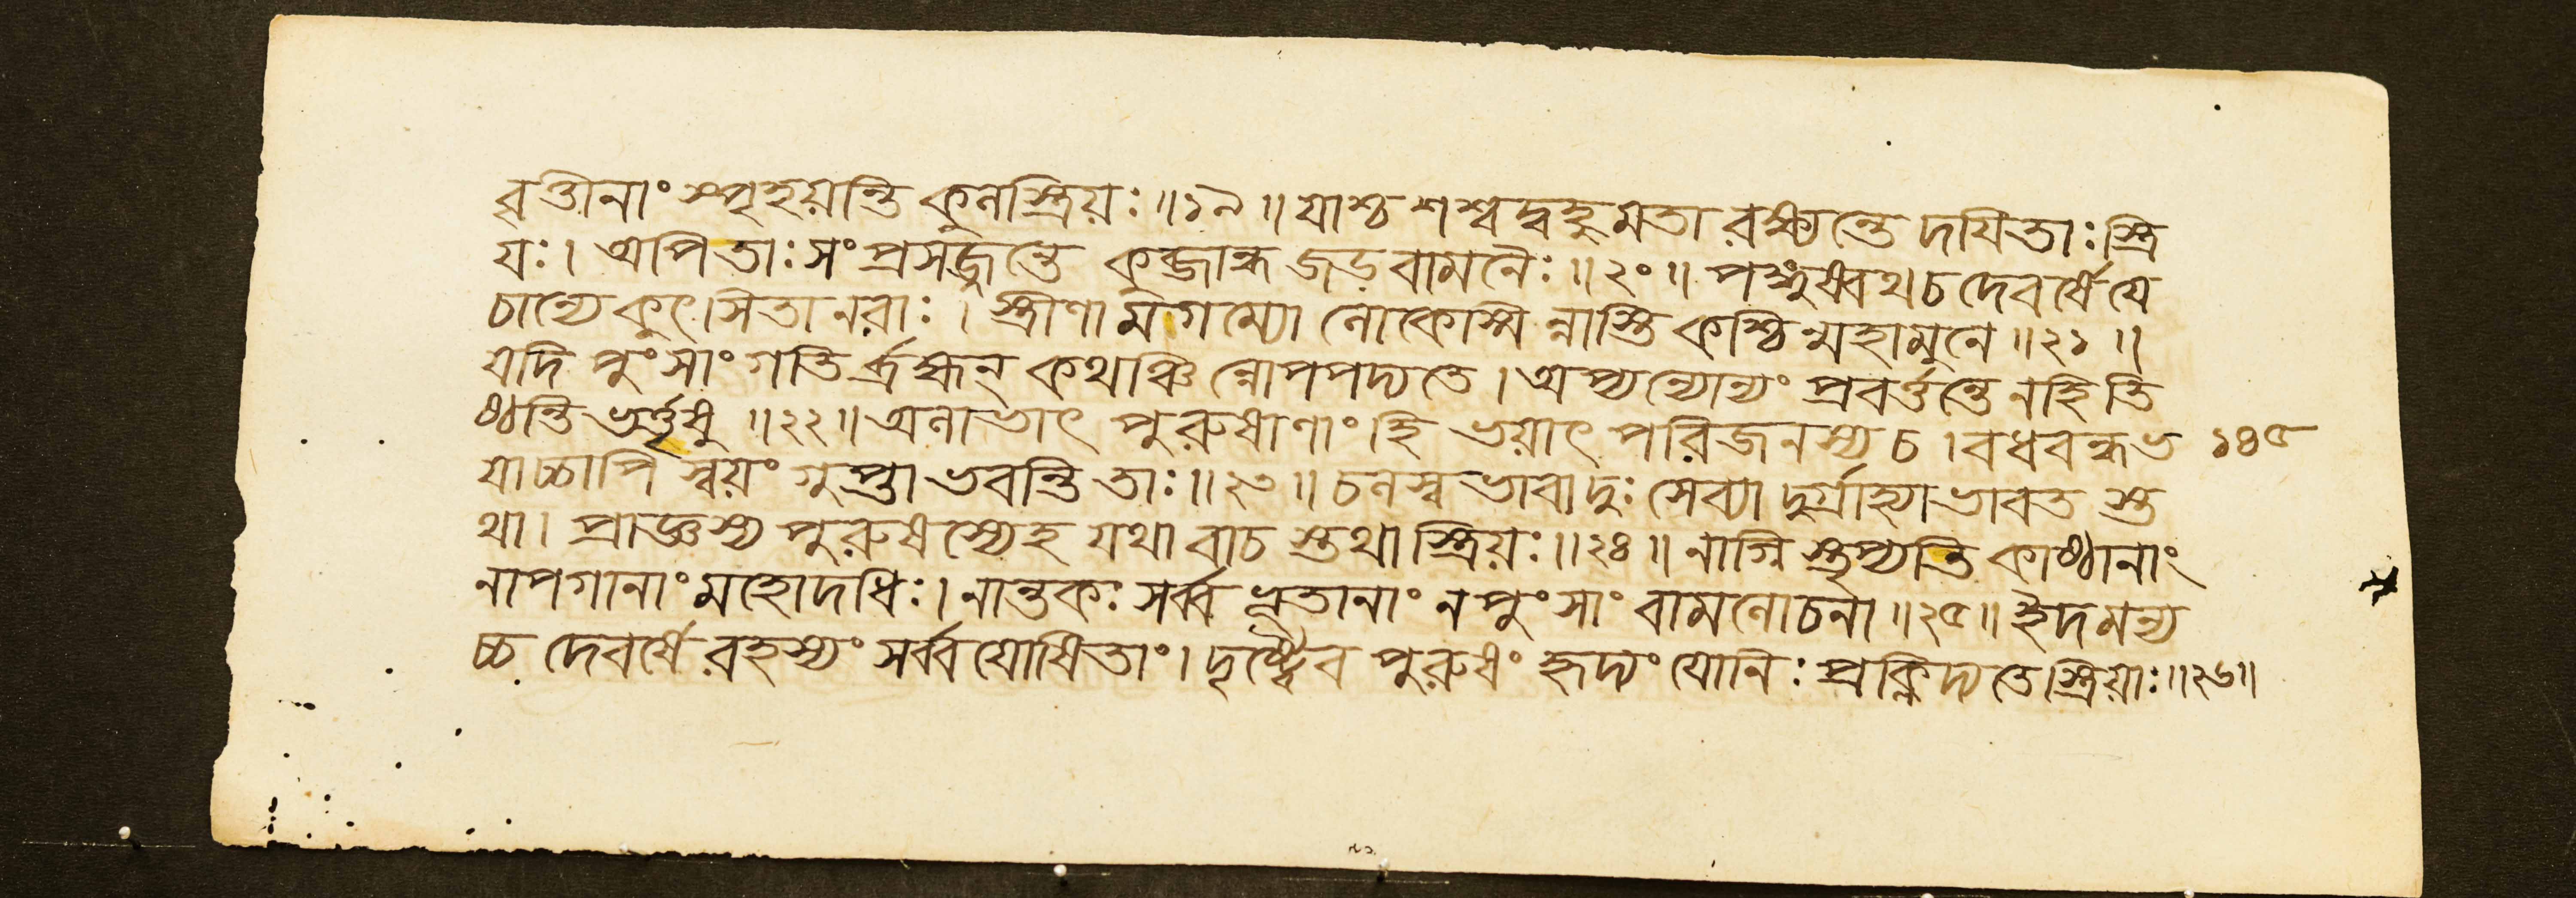 বৃত্তীনাং স্পৃহয়ন্তি কুলস্ত্রিয়ঃ॥১৯॥ যাশ্চ শশ্বদ্বহুমতা রক্ষ্যন্তে দযিতাঃ স্ত্রি
যঃ। অপি তাঃ সংপ্রসজ্জন্তে কুব্জান্ধজড়বামনৈঃ॥২০॥ পঙ্গুষ্বথ চ দেবর্ষে যে
চান্যে কুৎসিতা নরাঃ। স্ত্রীণামগম্যো লোকেস্মিন্নাস্তি কশ্চিন্মহামুনে॥২১॥
যদি পুংসাং গতির্ব্রহ্মন্ কথঞ্চিন্নোপপদ্যতে। অপ্যন্যোন্যং প্রবর্ত্তন্তে নহি তি
ষ্ঠন্তি ভর্ত্তৃষু॥২২॥ অলাভাৎ পুরুষাণাং হি ভয়াৎ পরিজনস্য চ। বধবন্ধভ ১৪৫
যাচ্চাপি স্বয়ং গুপ্তা ভবন্তি তাঃ॥২৩॥ চলস্বভাবা দুঃসেব্যা দুর্গ্রাহ্যা ভাবতস্ত
থা। প্রাজ্ঞস্য পুরুষস্যেহ যথা বাচস্তথা স্ত্রিয়ঃ॥২৪॥ নাগ্নিস্তৃপ্যতি কাষ্ঠানাং
নাপগানাং মহোদধিঃ। নান্তকঃ সর্ব্বভূতানাং ন পুংসাং বামলোচনা॥২৫॥ ইদমন্য
চ্চ দেবর্ষে রহস্যং সর্ব্বযোষিতাং। দৃষ্ট্বৈব পুরুষং হৃদ্যং যোনিঃ প্রক্লিদ্যতে স্ত্রিয়াঃ॥২৬॥